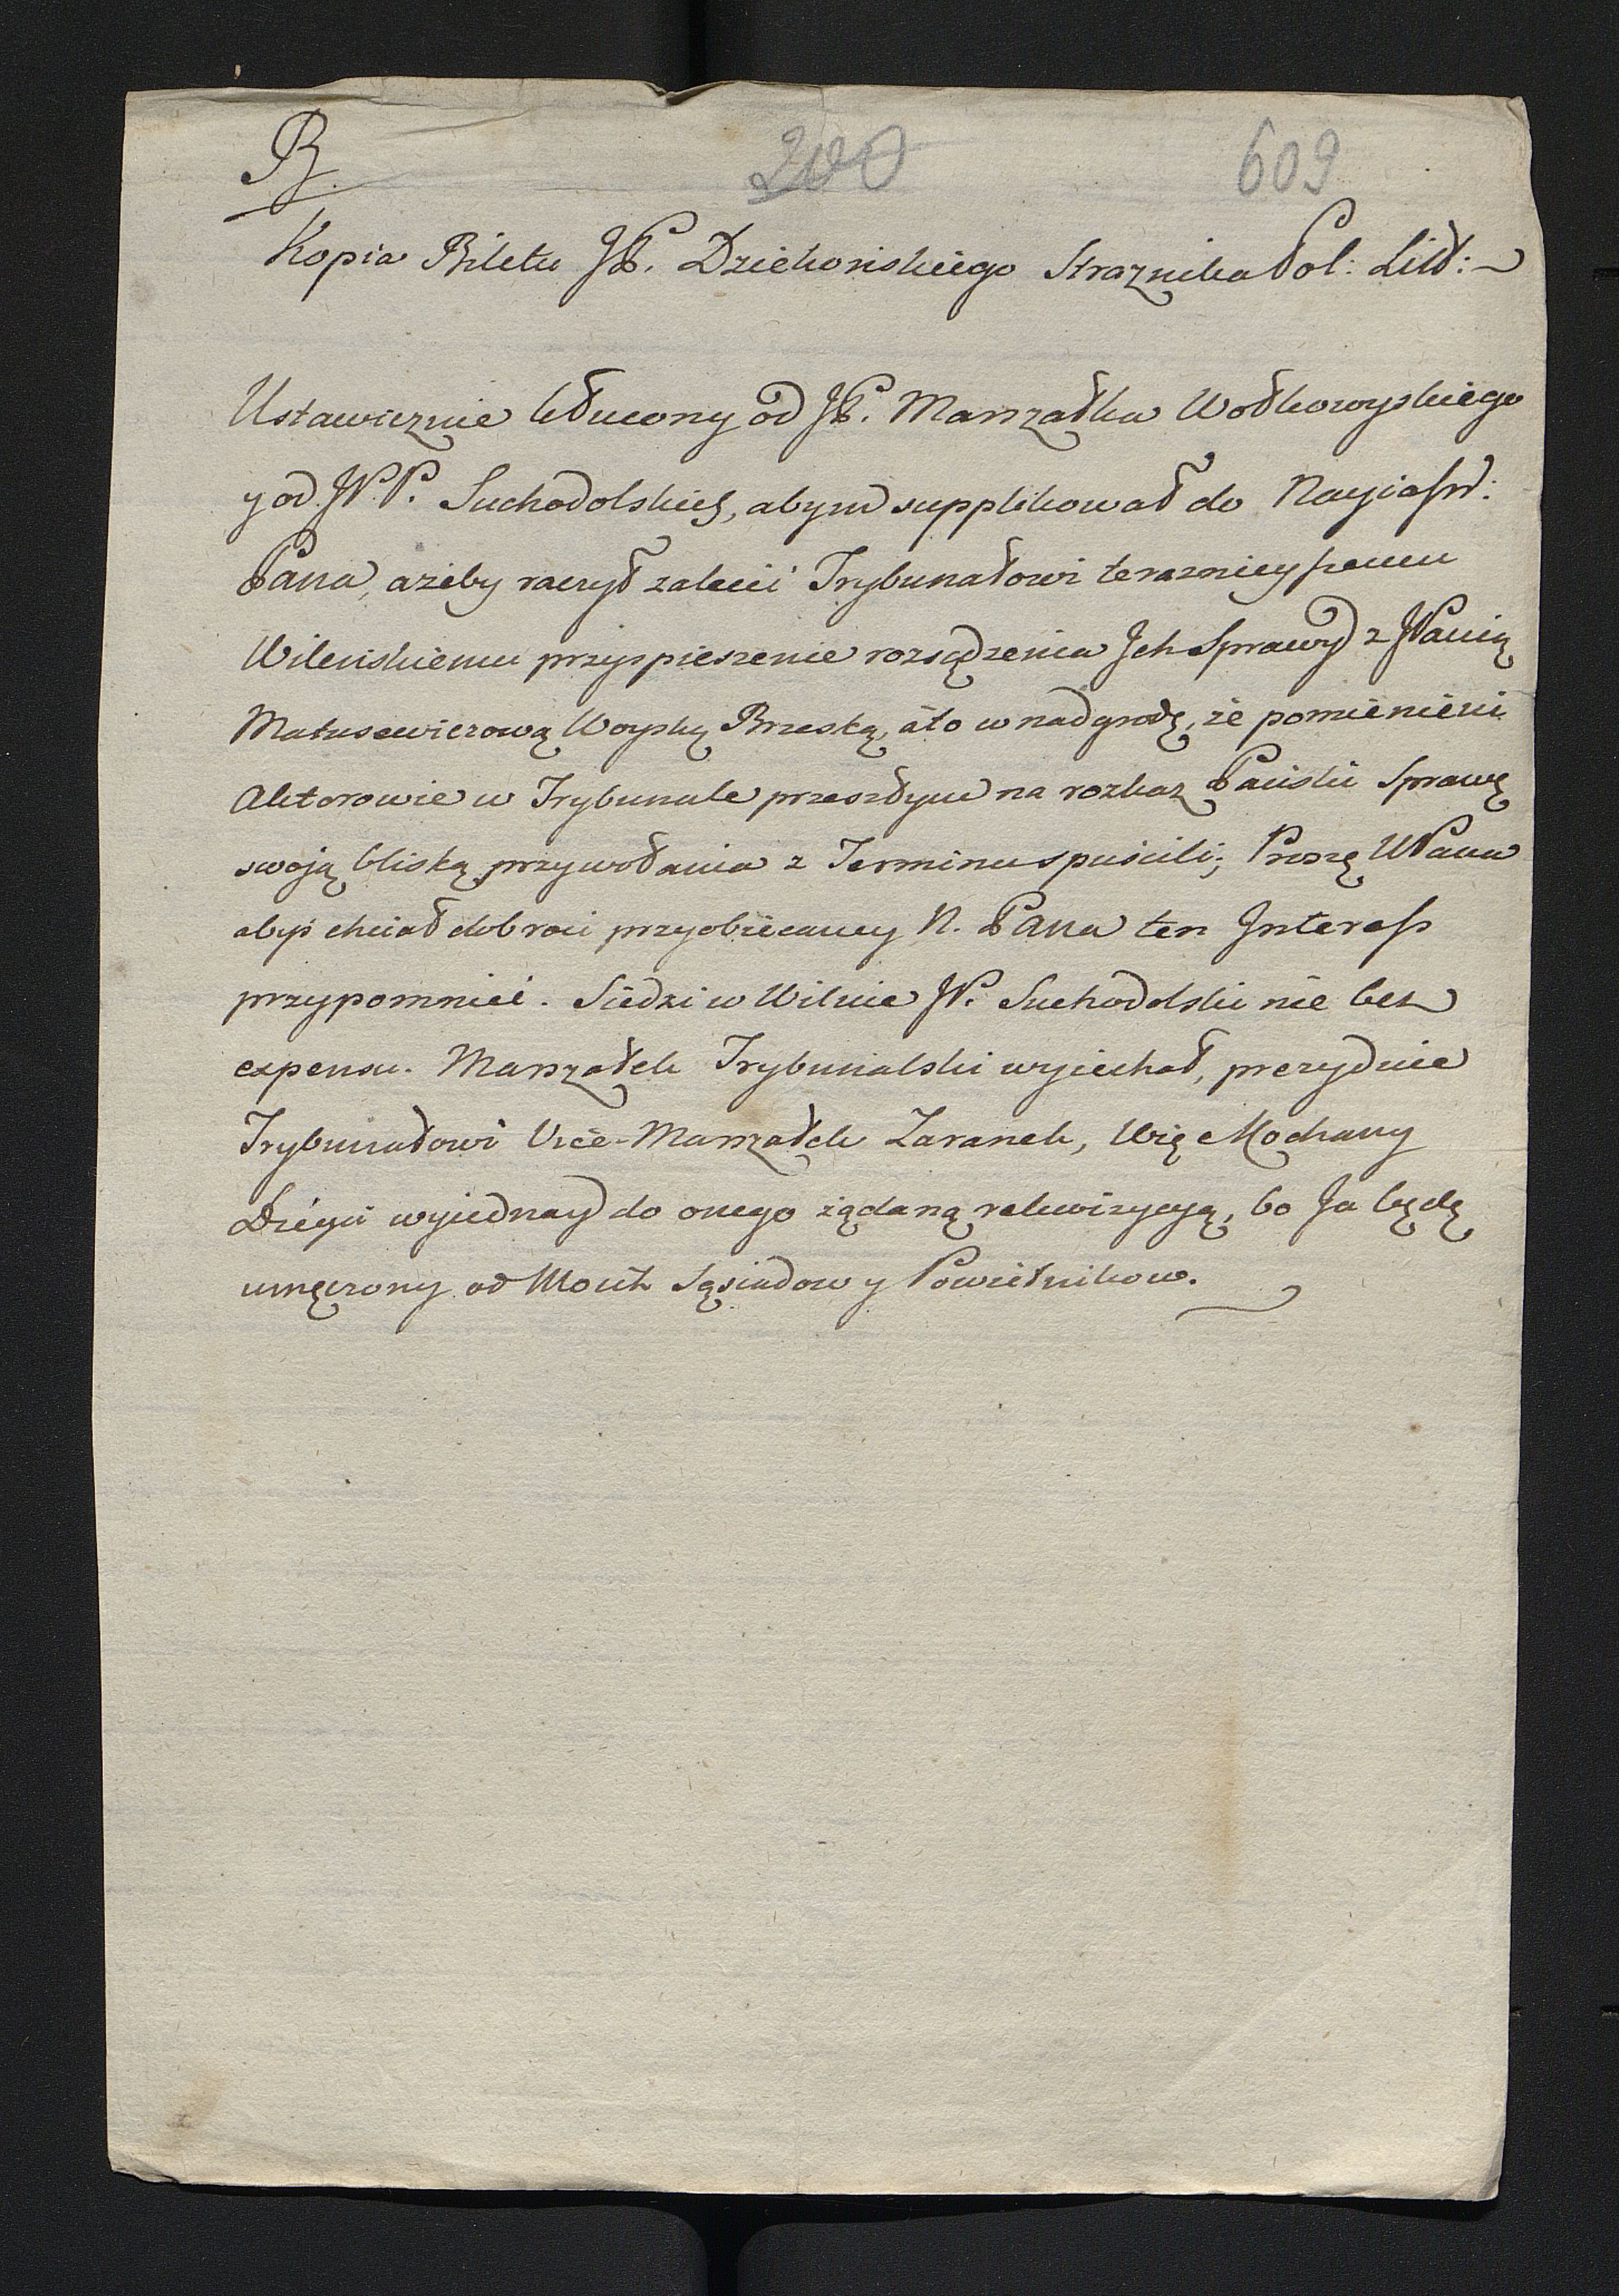 B.
200
609
Kopia Biletu JP. Dziekońskiego Straznika Pol: Litt:
Ustawicznie kłucony od JP. Marszałka Wołkowyskiego
y od JW.P. Suchodolskich, abym supplikował do Nayiaśn:
Pana, ażeby raczył zalecić Trybunałowi teraznieyszemu
Wileńskiemu przyspieszenie rozsądzenia Jch Sprawy z JPanią
Matusewiczową Woyską Brzeską, áto w nadgrodę, że pomienieni
Aktorowie w Trybunale przeszłym na rozkaz Pański Sprawę
swoją bliską przywołania z Terminu spuścili; Proszę WPana
abyś chciał dobroci przyobiecaney N. Pana ten Jnteress
przypomnieć. Siedzi w Wilnie JP. Suchodolski nie bez
expensu. Marszałek Trybunalski wyiechał, prezyduie
Trybunałowi Vice-Marszałek Zaranek, Więc Kochany
wyiednay do onego żądaną rekwizycyą, bo Ja będę
umęczony od Moich Sąsiadow y Powietnikow.